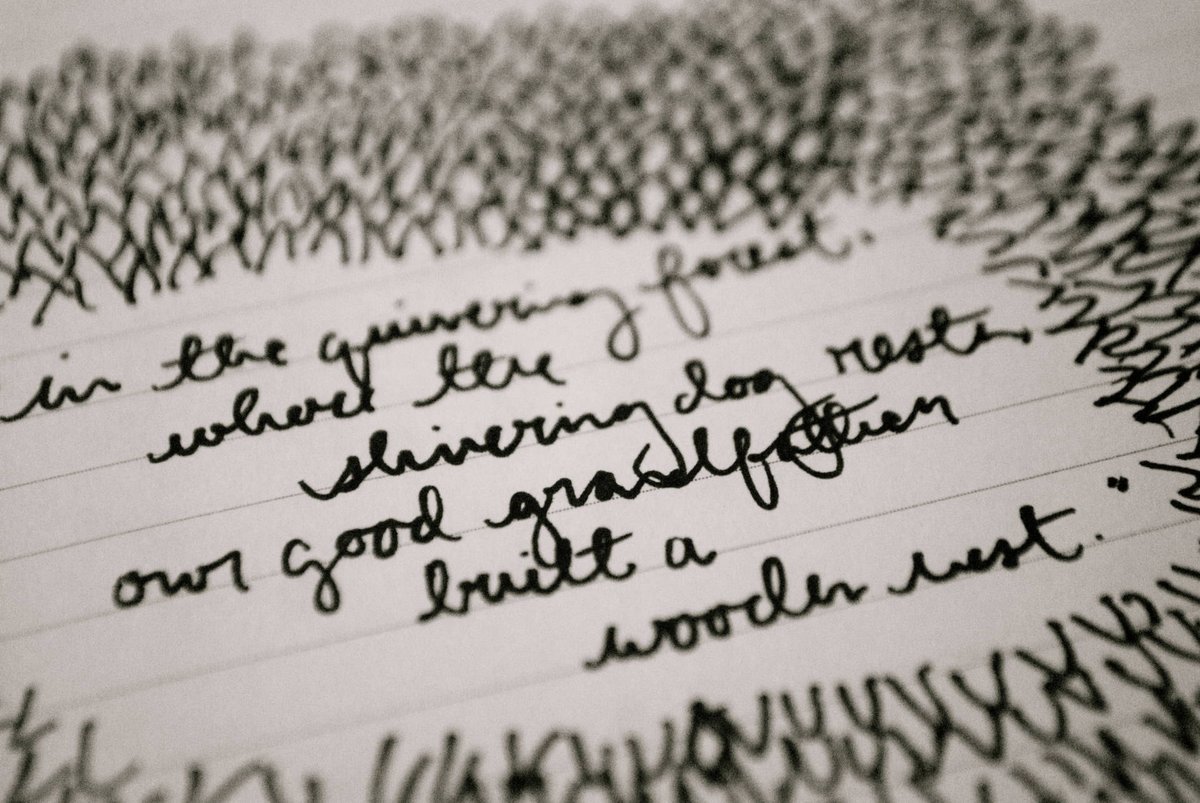 in the quivering forest.
where the
shivering dog rests,
our good grandfather
built a
wooden nest."